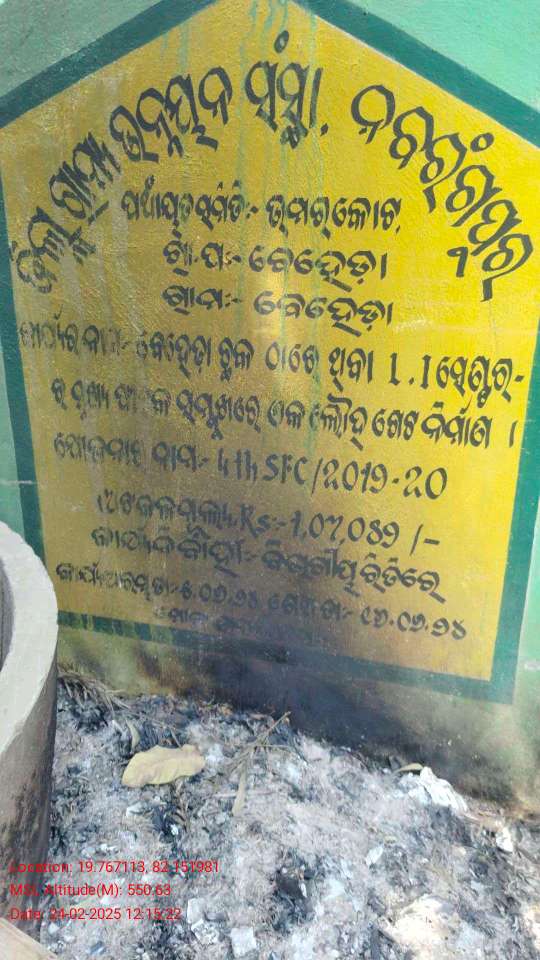 ଜିଲ୍ଲା ଗ୍ରାମ୍ୟ ଉନ୍ନୟନ ସଂସ୍ଥା, ନବରଂଗପୁର
ପଞ୍ଚାୟତ ସମିତି:- ଉମରକୋଟ,
ଗ୍ରା.ପ:- ବେହେଡ଼ା
ଗ୍ରାମ:- ବେହେଡ଼ା
କାର୍ଯ୍ୟର ନାମ:- ବେହେଡ଼ା ବ୍ଲକ ଠାରେ ଥିବା 1.1 ସେଣ୍ଟର-
ର ମୁଖ୍ୟ ଫାଟକ ସମ୍ମୁଖରେ ଏକ ଲୌହ ଗେଟ ନିର୍ମାଣ ।
ଯୋଜନାର ନାମ:- 4th SFC/2019-20
ଅଟକଳ ମୂଲ୍ୟ Rs:- 1,07,089 /-
କାର୍ଯ୍ୟନିର୍ବାହୀ:- ବିଭାଗୀୟ ରିତିରେ
କାର୍ଯ୍ୟ ଆରମ୍ଭ ତା:- ୫.୦୬.୨୧ ଶେଷ ତା:- ୧୬.୦୬.୨୧
Location: 19.767113, 82.151981
MSL Altitude(M): 550.63
Date: 24-02-2025 12:15:22